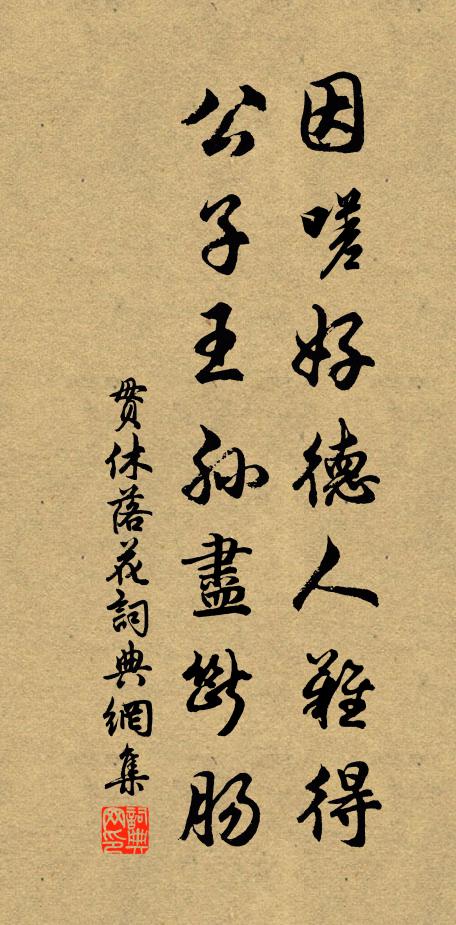 因嗟好德人難得
公子王孫盡斷腸
貫休落花詞典網集
詞典網印